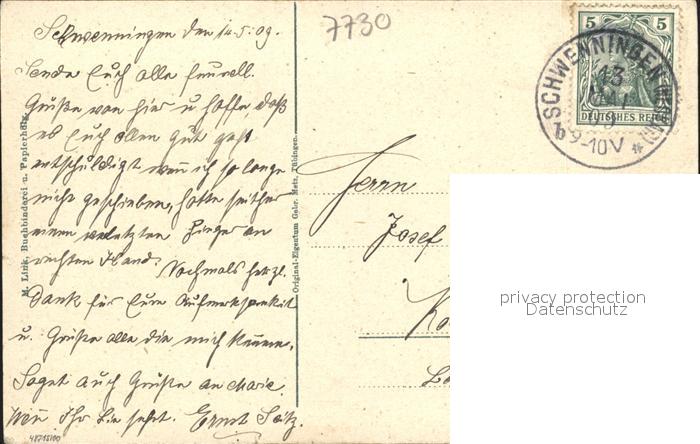 Schwenningen den 12.5.09.
Sende Euch alle freundl.
Grüße von hier u hoffe, daß
es Euch allen gut geht
entschuldigt wenn ich so lange
nicht geschrieben, hatte seither
einen verletzten Finger an
rechten Hand. Nochmals herzl.
Dank für Eure Aufmerksamkeit
u. Grüße alle die mich kennen.
Saget auch Grüße an Marie
Wenn Ihr Sie seht. Ernst
48718100
M. Link, Buchbinderei u. Papierhdlg.
Original-Eigentum Gebr. Metz, Tübingen.
7730
5 5
DEUTSCHES REICH
SCHWENNINGEN
13
MAI
09
b 9-10V *
Herrn
Josef
privacy protection
Datenschutz